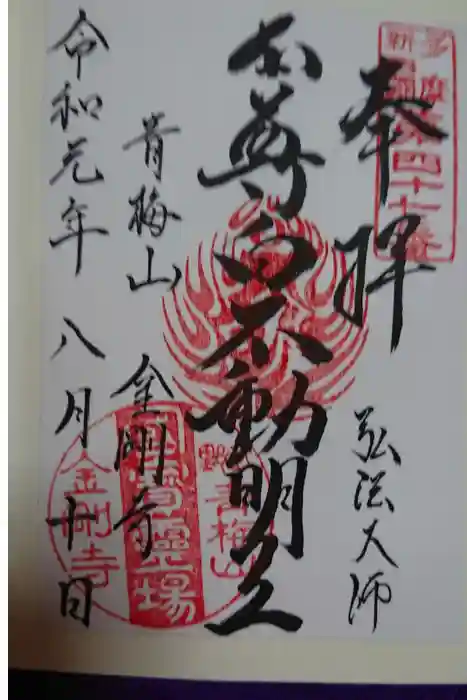 奉拝
弘法大師
本尊白不動明王
青梅山 金剛寺
令和元年八月十日
新多摩
第四十七番
青梅山
金剛寺
霊場